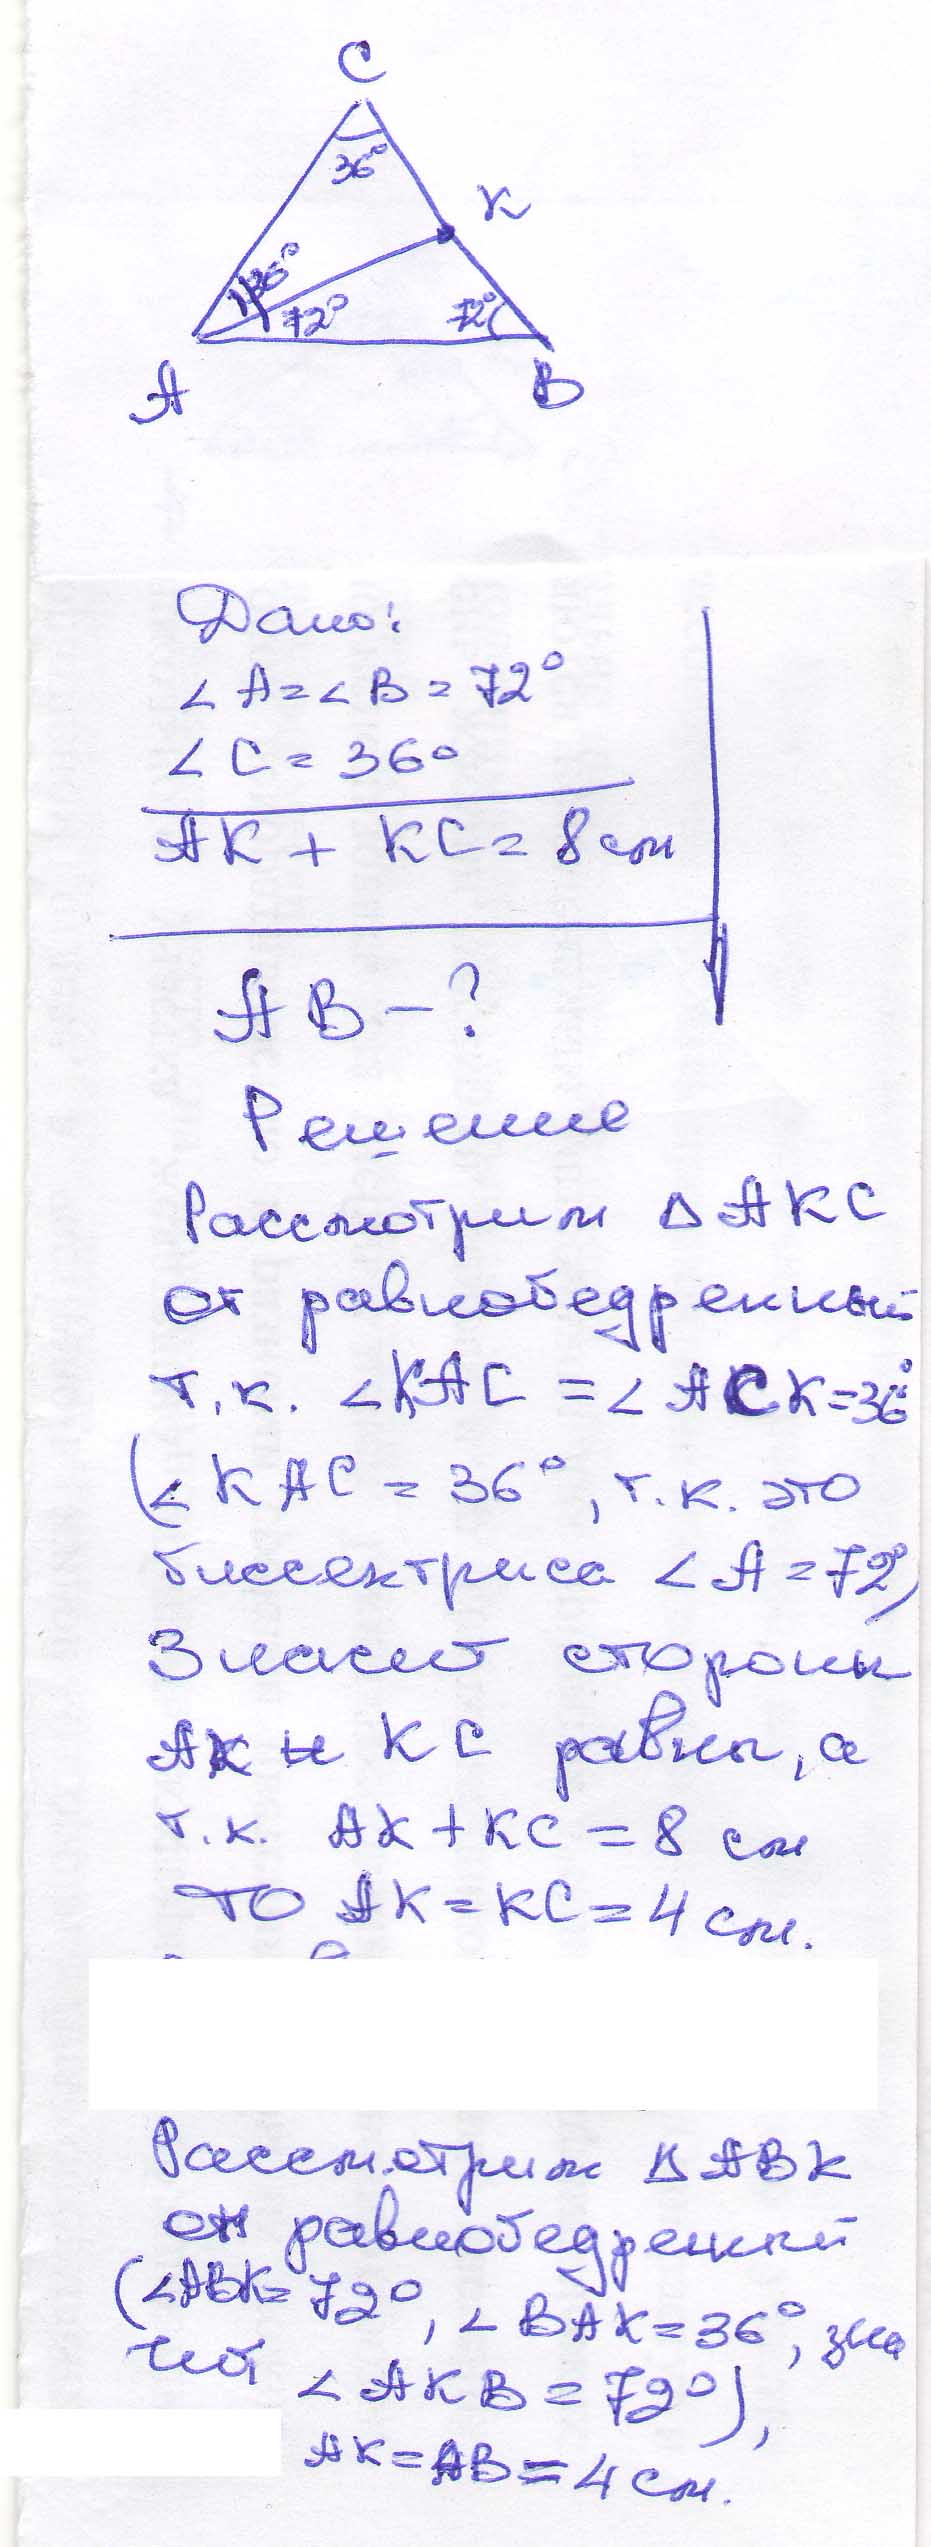 C
36°
K
36°
72°
72°
A
B
Дано:
∠A=∠B=72°
∠C=36°
AK + KC = 8 см
AB - ?
Решение
Рассмотрим ΔAKC
он равнобедренный
т.к. ∠KAC = ∠ACK=36°
(∠KAC = 36°, т.к. это
биссектриса ∠A=72°)
Значит стороны
AK и KC равны, а
т.к. AK+KC=8 см
то AK=KC=4 см.
Рассмотрим ΔABK
он равнобедренный
(∠ABK=72°, ∠BAK=36°, зна
чит ∠AKB=72°),
AK=AB=4 см.